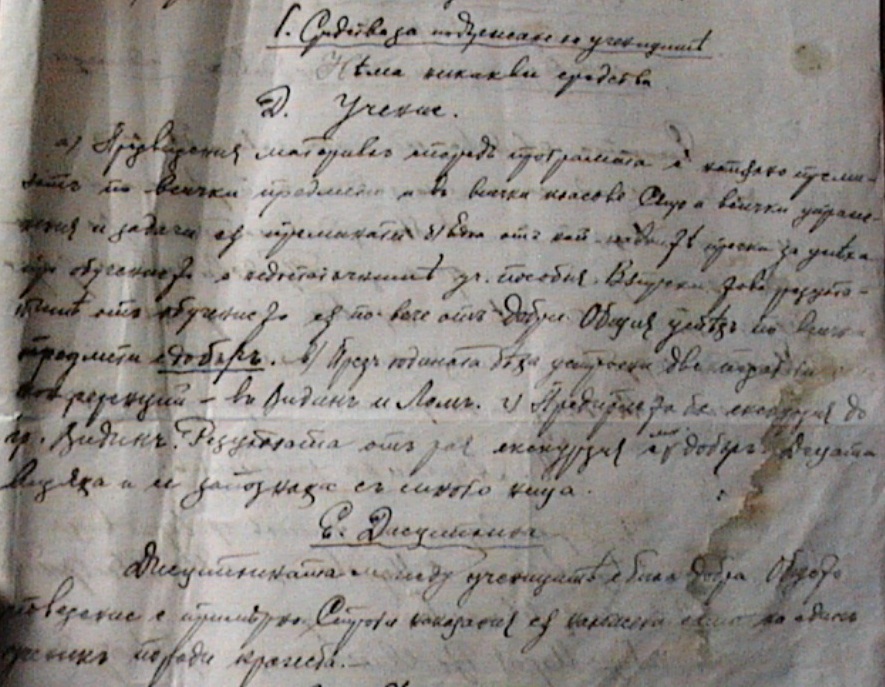 Средства за подпомагане на ученицитѣ
Нѣма никакви средства
Д. Учение.
а) Предвидения материалъ споредъ програмата е
по всички предмети и въ всички класове Също и всички упраж-
нения и задачи сѫ преминати б) За успѣха
при обучението е недостатъчнитѣ уч. пособия. Въпреки това резулта-
титѣ отъ обучението сѫ по вече отъ добри Общия успѣхъ по всички
предмети е добъръ. в) Презъ годината бѣха устроени две
конференции – въ Видинъ и Ломъ. г) Предприета бе екскурзия до
гр. Видинъ. Резултата отъ тая екскурзия е мн. добъръ. Децата
видяха и се запознаха съ много нѣща.
Е. Дисциплина
Дисциплината между ученицитѣ е била добра Общото
поведение е примѣрно. Строги наказания сѫ само на единъ
ученикъ поради кражба.